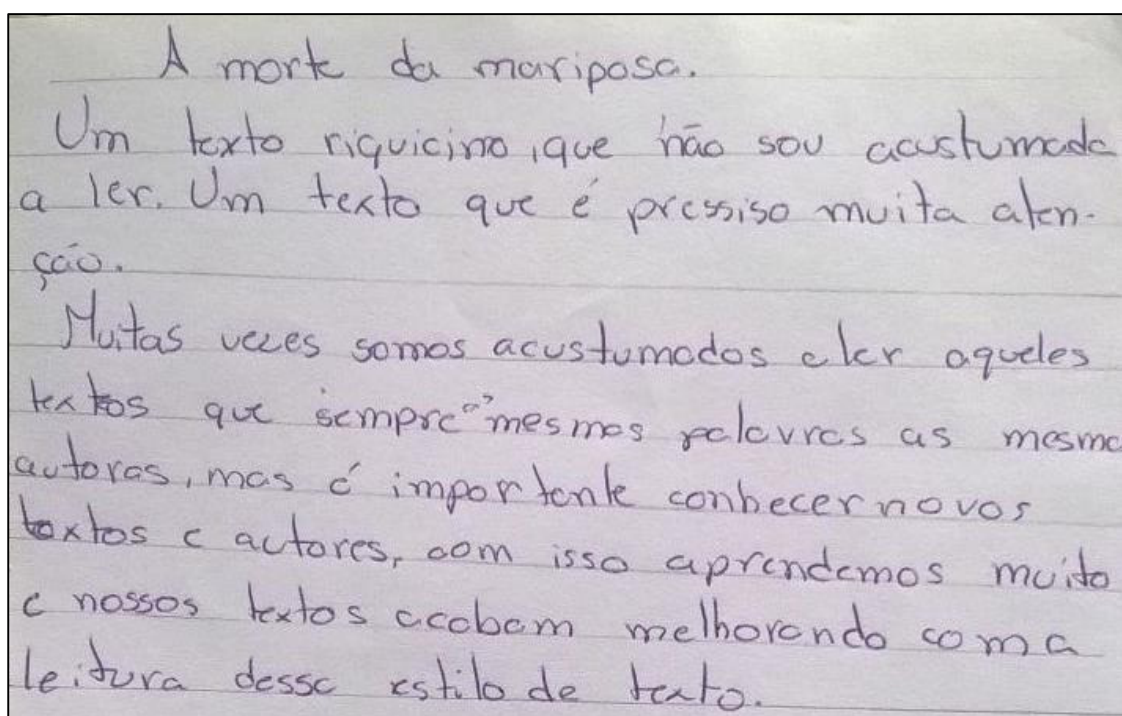 A morte da mariposa.
Um texto riquicimo, que não sou acustumada
a ler. Um texto que é pressiso muita aten-
ção.
Muitas vezes somos acustumados a ler aqueles
textos que sempre "as" mesmas palavras as mesma
autoras, mas é importante conhecer novos
textos e actores, com isso aprendemos muito
e nossos textos acabam melhorando com a
leitura desse estilo de texto.